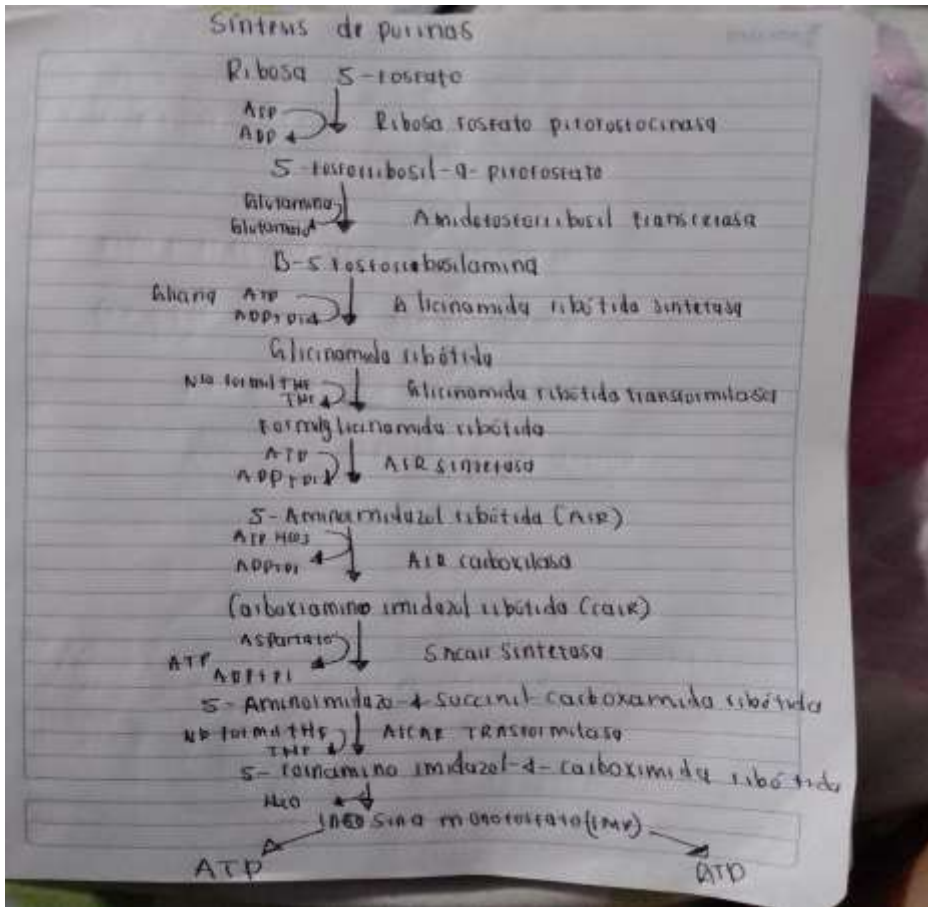 Síntesis de purinas
Ribosa 5-fosfato
ATP
ADP
Ribosa fosfato pirofosfocinasa
5-fosforribosil-α-pirofosfato
Glutamina
Glutamato
Amidofosforribosil transferasa
B-5 fosforribosilamina
Glicina ATP
ADP+Pi
Glicinamida ribótida sintetasa
Glicinamida ribótida
N10 formil THF
THF
Glicinamida ribótida transformilasa
Formilglicinamida ribótida
ATP
ADP+Pi
AIR sintetasa
5-Aminoimidazol ribótida (AIR)
ATP HCO3
ADP+Pi
AIR carboxilasa
Carboxiamino imidazol ribótida (CAIR)
Aspartato
ATP
ADP+Pi
Sacair sintetasa
5-Aminoimidazo-4-succinil carboxamida ribótida
N10 formil THF
THF
AICAR TRAnsformilasa
5-formamino imidazol-4-carboximida ribótida
H2O
Inosina monofosfato (IMP)
ATP
ATP